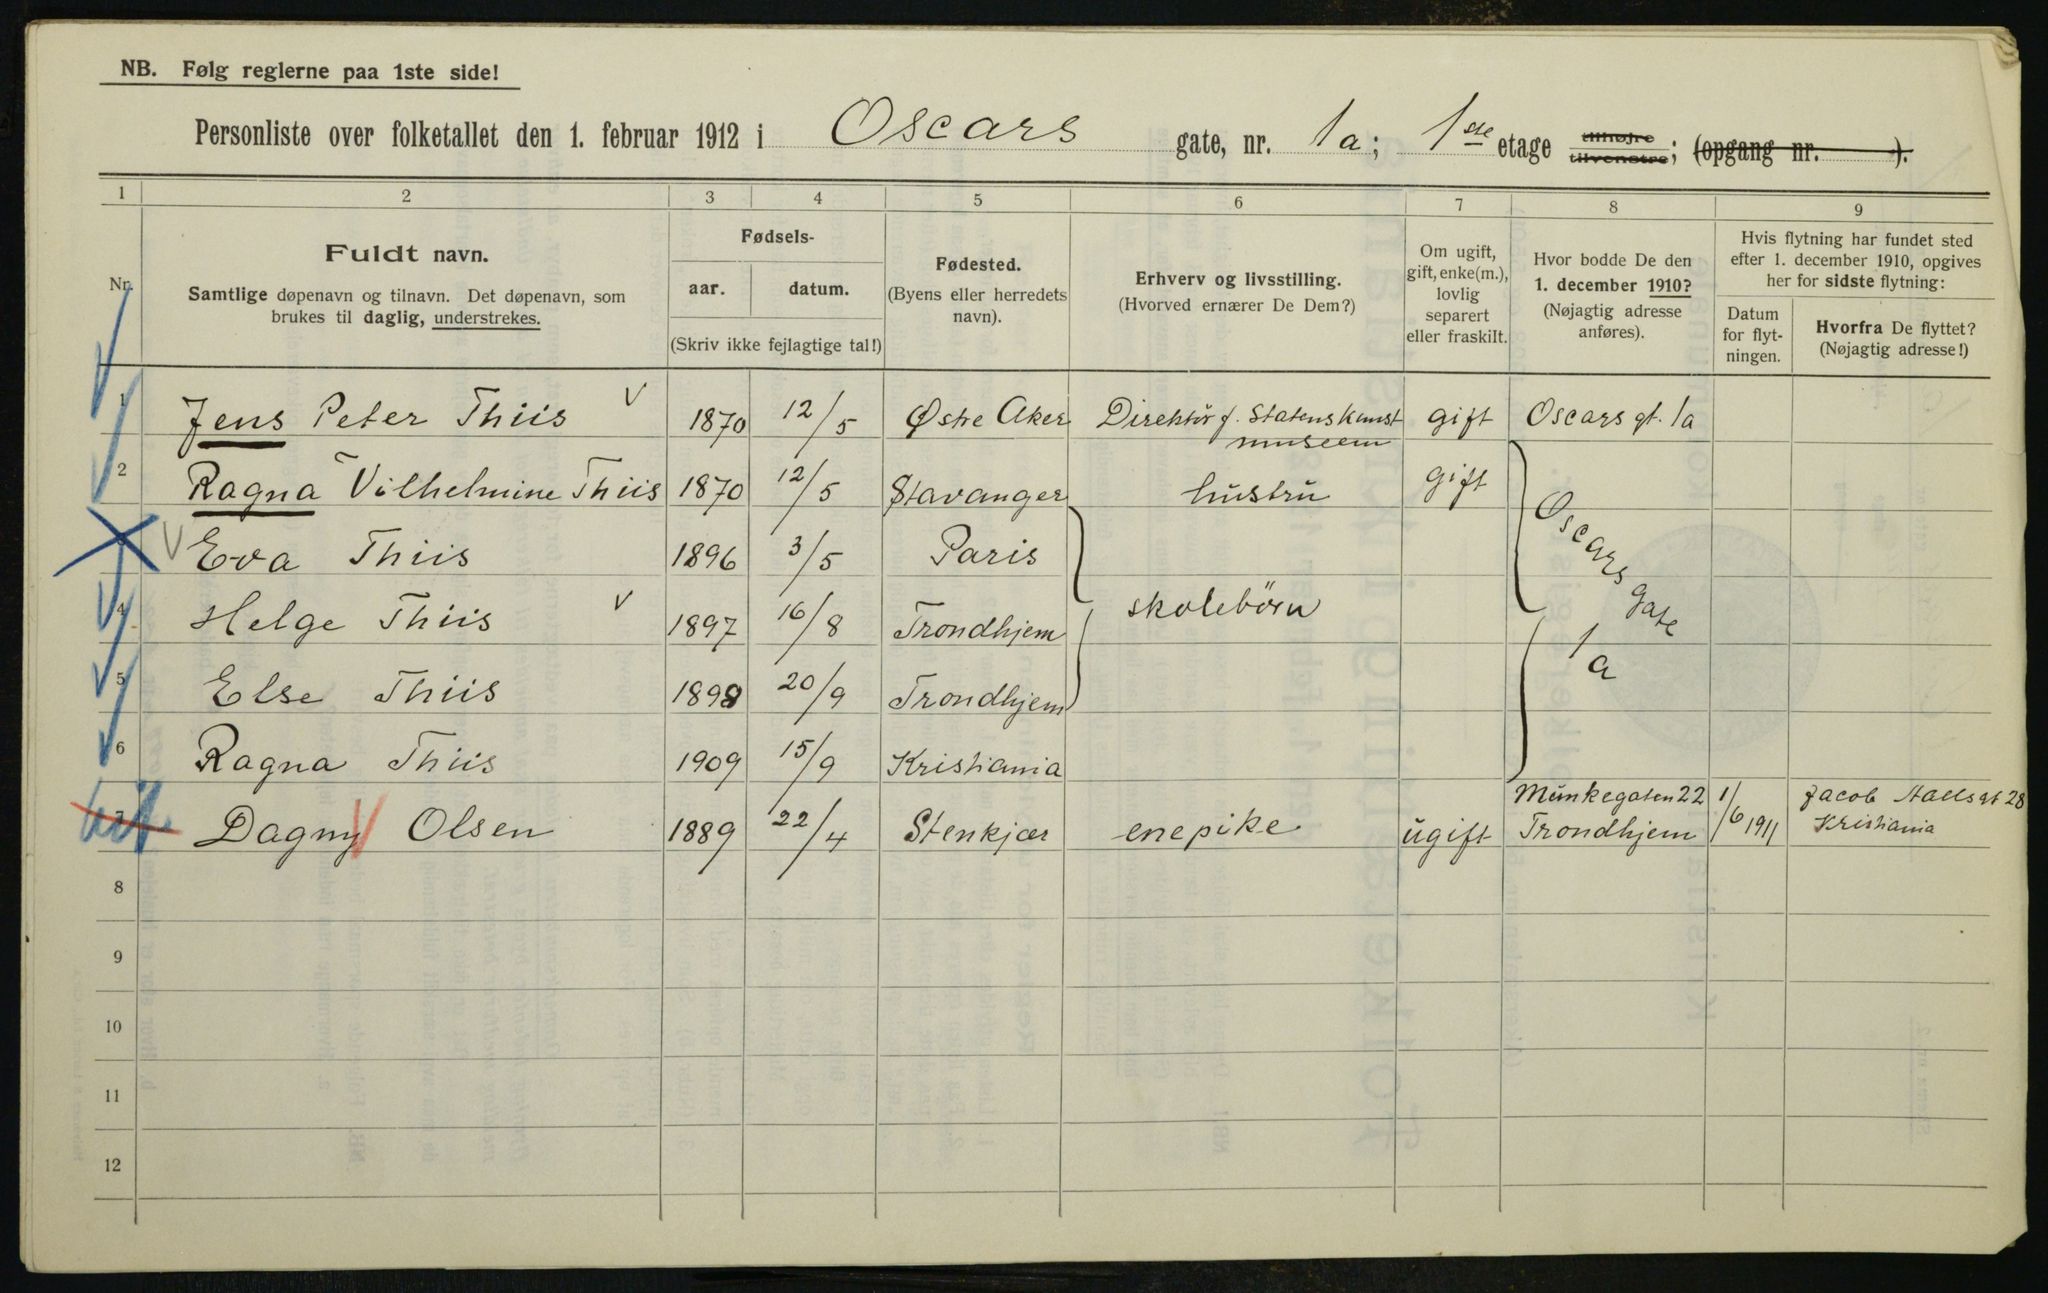 NB. Følg reglerne paa 1ste side!
Personliste over folketallet den 1. februar 1912 i Oscars gate, nr. 1a; 1ste etage tilhøjre tilvenstre; (opgang nr. ).
1 2 3 4 5 6 7 8 9
Nr.
Fuldt navn.
Samtlige døpenavn og tilnavn. Det døpenavn, som
brukes til daglig, understrekes.
Fødsels-
aar. datum.
(Skriv ikke fejlagtige tal!)
Fødested.
(Byens eller herredets
navn).
Erhverv og livsstilling.
(Hvorved ernærer De Dem?)
Om ugift,
gift, enke(m.),
lovlig
separert
eller fraskilt.
Hvor bodde De den
1. december 1910?
(Nøjagtig adresse
anføres).
Hvis flytning har fundet sted
efter 1. december 1910, opgives
her for sidste flytning:
Datum
for flyt-
ningen.
Hvorfra De flyttet?
(Nøjagtig adresse!)
1 Jens Peter Thiis 1870 12/5 Østre Aker Direktör f. Statens Kunst gift Oscars gt. 1a
museem
2 Ragna Vilhelmine Thiis 1870 12/5 Stavanger hustru gift
3 Eva Thiis 1896 3/5 Paris
Oscars gate
1a
4 Helge Thiis 1897 16/8 Trondhjem skolebörn
5 Else Thiis 1898 20/9 Trondhjem
6 Ragna Thiis 1909 15/9 Kristiania
7 Dagny Olsen 1889 22/4 Stenkjær enepike ugift Munkegaten 22 1/6 1911 Jacob Aalls gt 28
Trondhjem Kristiania
8
9
10
11
12